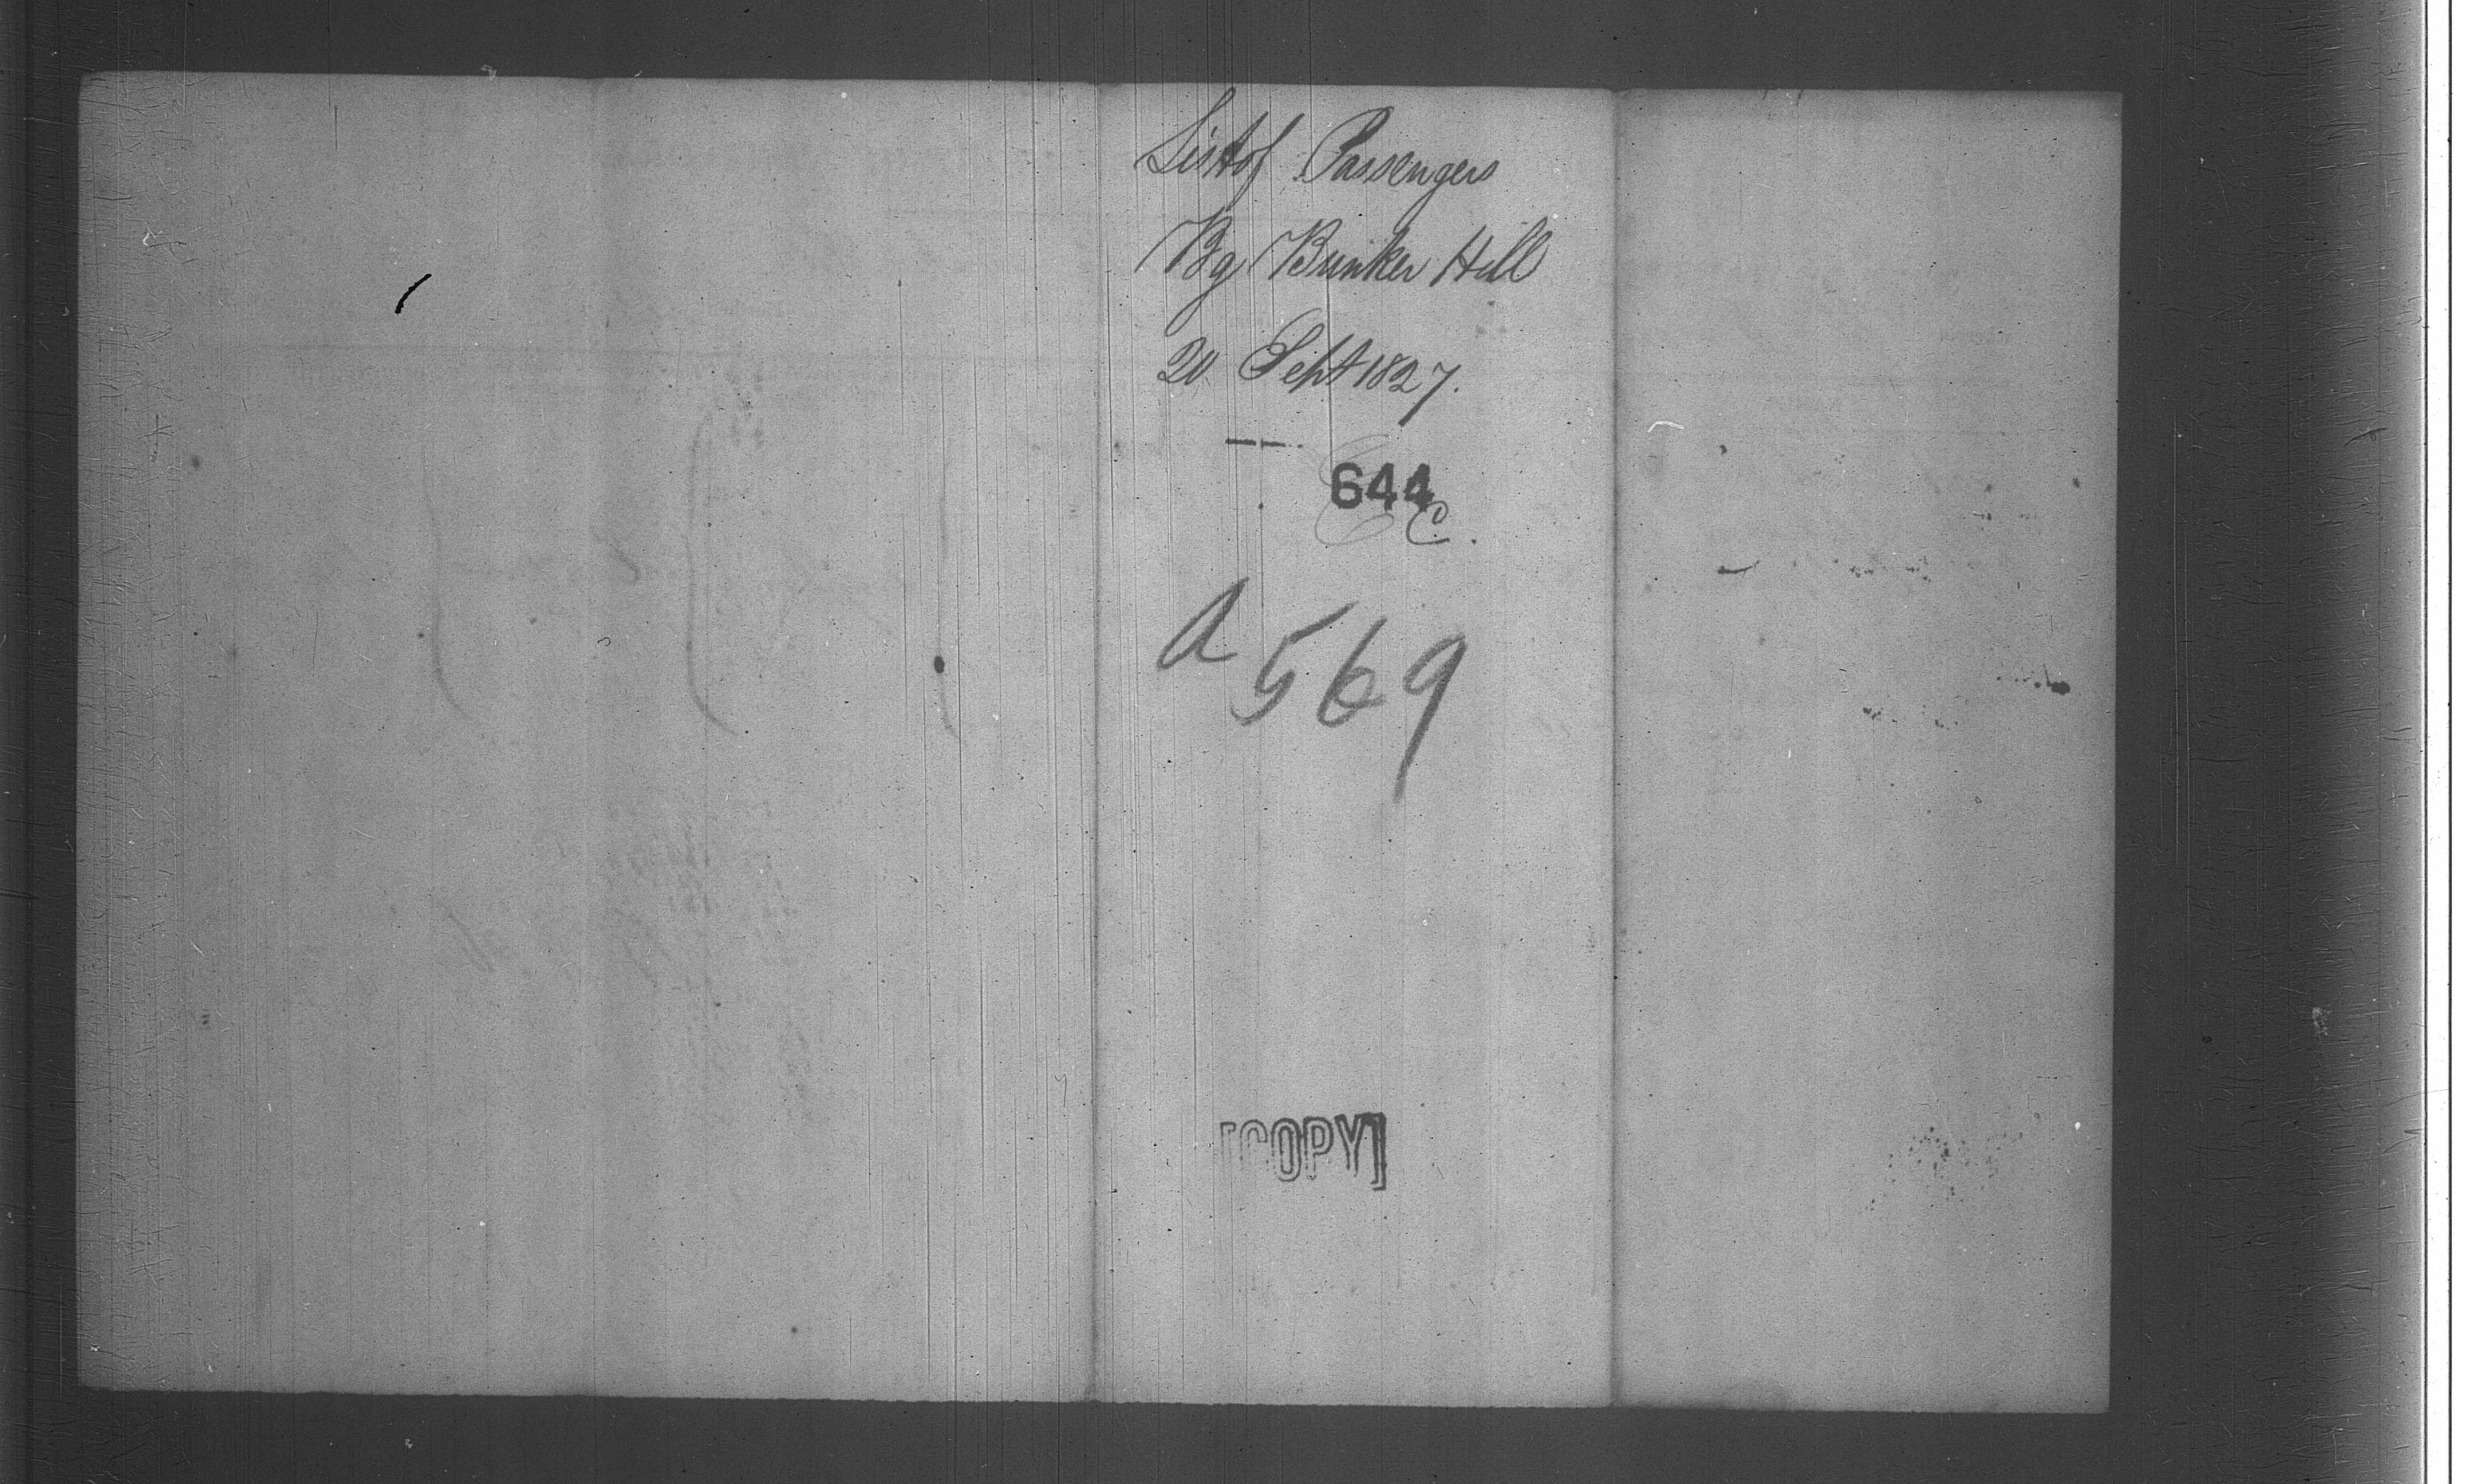 List of Passengers
Bg Bunker Hill
20 Sept 1827.
644
C.
A 569
[COPY]